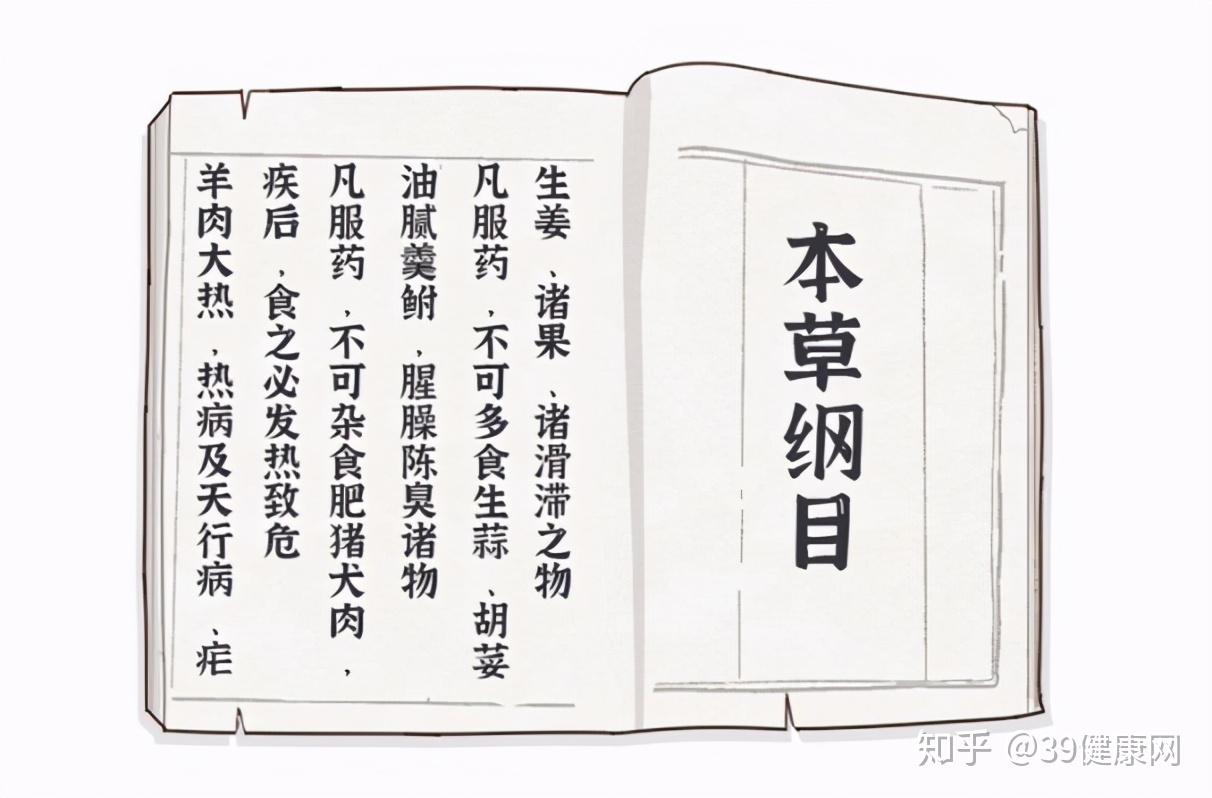 本草纲目
羊肉大热，热病及天行病、疟
疾后，食之必发热致危
凡服药，不可杂食肥猪犬肉，
油腻羹鲋，腥臊陈臭诸物
凡服药，不可多食生蒜、胡荽
生姜、诸果、诸滑滞之物
知乎 @39健康网